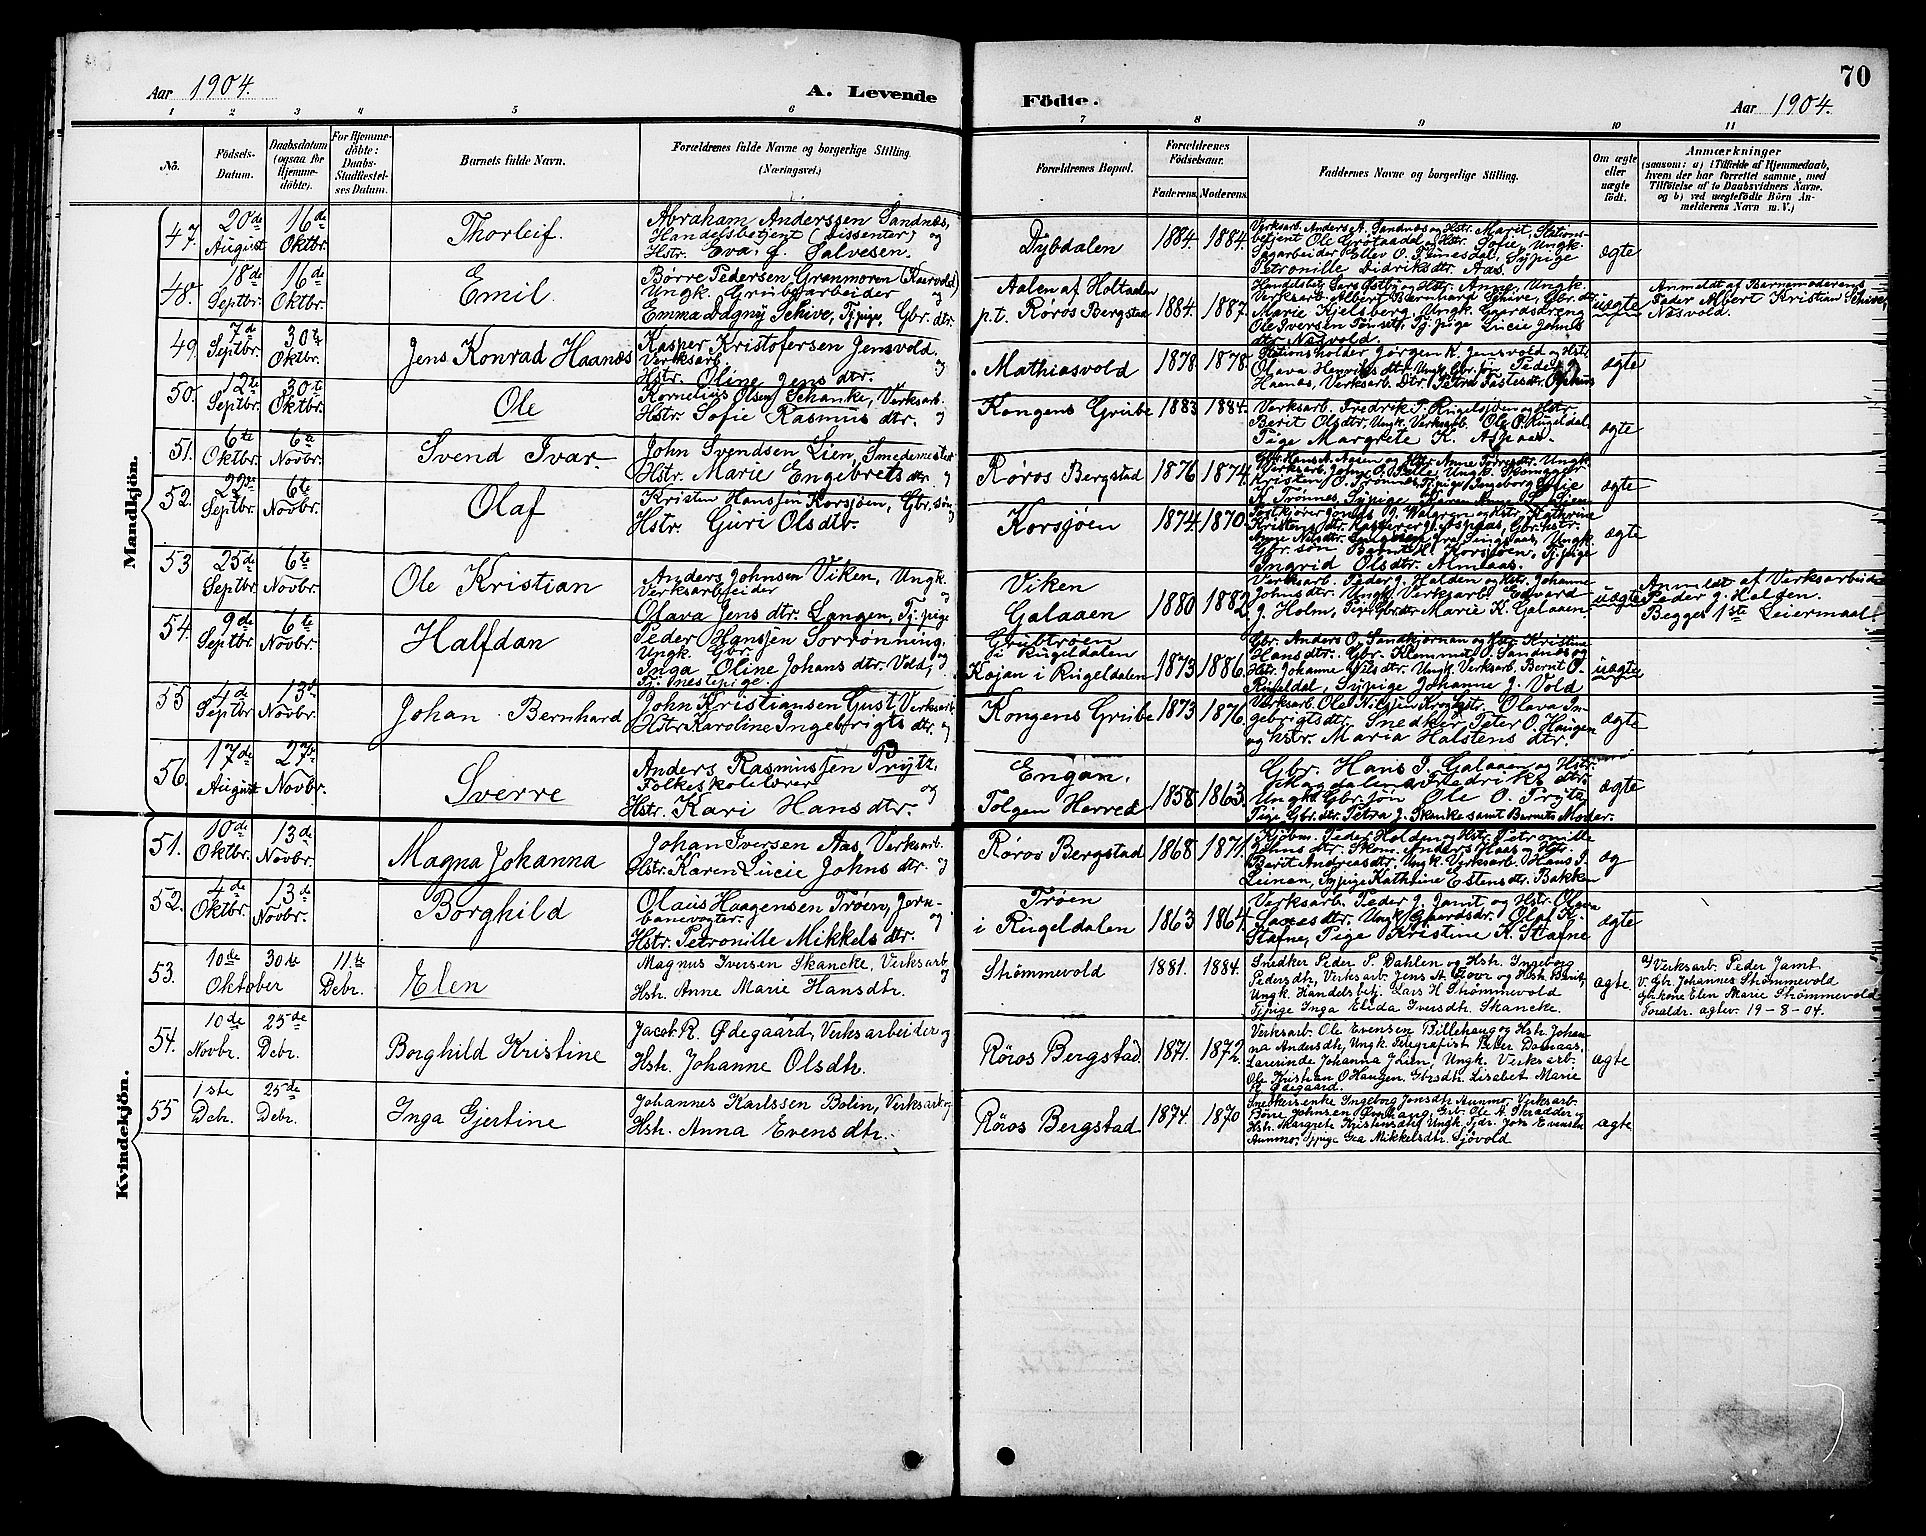 Aar 1904.
A. Levende
Födte.
70
Aar 1904.
1 2 3 4 5 6 7 8 9 10 11
No.
Födsels-
Datum.
Daabsdatum
(ogsaa for
Hjemme-
döbte).
For Hjemme-
döbte:
Daabs-
Stadfæstel-
ses Datum.
Barnets fulde Navn.
Forældrenes fulde Navne og borgerlige Stilling.
(Næringsvei.)
Forældrenes Bopæl.
Forældrenes
Födselsaar.
Faderens. Moderens.
Faddernes Navne og borgerlige Stilling.
Om ægte
eller
uægte
födt.
Anmærkninger
(saasom: a) i Tilfælde af Hjemmedaab,
hvem der har forrettet samme, med
Tilföielse af to Daabsvidners Navne.
og b) ved uægtefödte Börn An-
melderens Navn m. V.)
Mandkjön.
47. 20de August 16de Oktbr.
Thorleif.
Abraham Anderssen Sandnæs,
Handelsbetjent (Dissenter) og
Hstr. Eva, f. Salvesen.
Dybdalen
1884. 1884.
Verksarb. Anders A. Sandnæs og Hstr. Marit, Stations-
betjent Ole Grötaadal og Hstr. Sofie, Ungk.
Sypige
Petronille Didriksdtr. Aas.
ægte
48. 18de Septbr. 16de Oktbr.
Emil.
Børre Pedersen Granmoren (Kurvold)
Ungk. Grubearbeider og
Emma Dagny Schive, Tj.pige, Gbr. dtr.
Aalen af Holtaalen
p.t. Røros Bergstad
1884. 1887.
Verksarb. Albert Bernhard Schive, Gbr. dtr.
Marie Kjelsberg, Ungk. Gaardsdreng
Ole Iversen Tønset, Tj.pige Lucie Johns
dtr. Næsvold.
uægte
Anmeldt af Barnemoderens
Fader Albert Kristian Schive,
Næsvold.
49. 7de Septbr. 30te Oktbr.
Jens Konrad Haanæs
Kasper Kristofersen Jensvold
Verksarb. og
Hstr. Oline Jens dtr.
Mathiasvold
1878 1878.
Stationsholder Jørgen K. Jensvold og Hstr.
Olava Henriksdtr. Ungk. Gbr. søn Peder J.
Haanæs, Verksarb. Dtr. Petra
ægte
50. 12te Septbr. 30te Oktbr.
Ole
Kornelius Olsen Schanke, Verksarb.
Hstr. Sofie Rasmus dtr. og
Kongens Grube
1883 1884.
Verksarb. Fredrik P. Rugelsjøen og Hstr.
Berit Olsdtr. Ungk. Verksarb. Ole O. Rugeldal,
Pige Margrete K. Aspaas.
ægte
51. 6te Oktbr. 6te Novbr.
Svend Ivar.
John Svendsen Lien, Smedemester
Hstr. Marie Engebrets dtr. og
Røros Bergstad
1876 1874.
Gbr. Hans A. Aasen og Hstr. Anne
Verksarb. John O. Ungk. Skomager
Kristen O. Trønnes, Tj.pige Ingeborg
K. Trønnes, Sypige Karen Anne S. Lien
ægte
52. 22de Septbr. 6te Novbr.
Olaf
Kristen Hanssen Korsjøen, Gbr. søn
Hstr. Guri Olsdtr. og
Korsjøen
1874. 1870.
Kristens dtr.
Gbr. søn Bernt H. Korsjøen, Tj.pige
Ingrid Olsdtr. Almaas.
ægte
53 25de Septbr. 6te Novbr.
Ole Kristian
Anders Johnsen Viken, Ungk.
Verksarbeider og
Olava Jens dtr. Langen, Tj.pige
Viken
Galaaen
1880 1882
Verksarb. Peder J. Halden og Hstr. Johanne
Johnsdtr. Ungk. Verksarb. Edvard
J. Holm, Pige Gbr. dtr. Marie K. Galaaen.
uægte
Anmeldt af Verksarbeider
Peder J. Halden.
Begges 1ste Leiermaal.
54. 9de Septbr. 6te Novbr.
Halfdan
Peder Hanssen Sørrønning,
Ungk. Gbr. og
Inga Oline Johans dtr. Vold,
Tjenestepige.
Grubtrøen
i Rugeldalen
Kojan i Rugeldalen
1873 1886.
Gbr. Anders O. Sandkjernan og Hstr. Kristine
Hansdtr. Gbr. Klemmet O. Sandnæs og
Hstr. Johanne Nilsdtr. Ungk. Verksarb. Bernt O.
Rugeldal, Sypige Johanne J. Vold
uægte
55 4de Septbr. 13de Novbr.
Johan Bernhard
John Kristiansen Gust, Verksarb.
Hstr. Karoline Ingebrigts dtr. og
Kongens Grube
1873 1876.
Verksarb. Ole Nilsen og Hstr. Olava In-
gebrigtsdtr. Snedker Peter O. Haugen
og Hstr. Maria Halstens dtr.
ægte
56. 17de August 27de Novbr.
Sverre
Anders Rasmussen Prytz,
Folkeskolelærer og
Hstr. Kari Hans dtr.
Engan,
Tolgen Herred
1858 1863.
Gbr. Hans J. Galaaen og Hstr.
Magdalena Fredriks dtr.
Ungk. Gbr. søn Ole O. Prytz
Pige Gbr. dtr. Petra J. Skanke samt Barnets Moder.
ægte
Kvindekjön.
51. 10de Oktbr. 13de Novbr.
Magna Johanna
Johan Iversen Aas, Verksarb.
Hstr. Karen Lucie Johns dtr. og
Røros Bergstad
1868 1871.
Kjøbm. Peder Holden og Hstr. Petronille
Johns dtr. Skom. Anders Haas og Hstr.
Berit Andreasdtr. Ungk. Verksarb. Hans I.
Leinan, Sypige Kathrine Estens dtr. Bakken
52. 4de Oktbr. 13de Novbr.
Borghild
Olaus Haagensen Trøen, Jern-
banevogter og
Hstr. Petronille Mikkels dtr.
Trøen
i Rugeldalen
1863 1864.
Verksarb. Peder J. Jamt og Hstr. Olava
dtr. Ungk. Gaardsdr. Olaf K.
Stafne, Pige Kristine K. Stafne
ægte
53. 10de Oktober 30te 11te Debr.
Elen
Magnus Iversen Skancke, Verksarb
og
Hstr. Anne Marie Hansdtr.
Strømmevold
1881. 1884.
Snedker Peder P. Dahlen og Hstr. Ingeborg
Pedersdtr, Verksarb. Jens A. og Hstr. Berit,
Ungk. Handelsbetj. Lars H Strømmevold
Tjpige Inga Elida Iversdtr. Skancke.
ægte
Verksarb. Peder Jamt
v. Gbr. Johannes Strømmevold
Gbrkone Elen Marie Strømmevold
Foraldr. agtev. 19-8-04.
54. 10de Novbr. 25de Debr.
Borghild Kristine
Jacob R. Ødegaard, Verksarbeider og
Hstr. Johanne Olsdtr.
Røros Bergstad.
1871. 1872.
Verksarb. Ole Evensen Billehaug og Hstr. Johan-
na Andersdtr, Ungk. Telegrafist Peter Damaas,
Lærerinde Johanna J Lien, Ungk. Verksarb.
Ole Kristian O Haugen. Gbrsdtr. Lisabet Marie
R. Ødegaard.
ægte
55 1ste Debr. 25de Debr.
Inga Gjertine
Johannes Karlssen Bolin, Verksarb og
Hstr. Anna Evensdtr.
Røros Bergstad
1874. 1870
Snedkersenke Ingeborg Jonsdtr Aunmo, Verksarb.
Børre Johnsen Gbr. Ole A. Skradder og
Hstr. Margrete Kristensdtr Ungk. Tjdr. Jon Evensen
Aunmo, Tjpige Gea Mikkelsdtr. Sjøvold
ægte